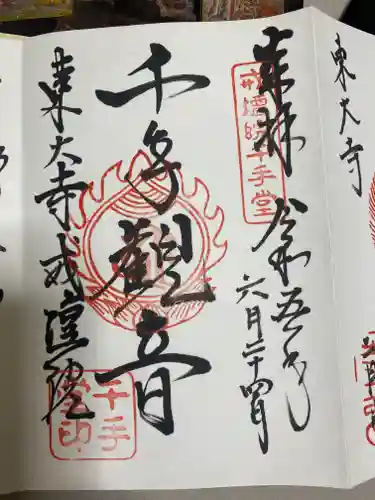 東大寺
奉拝
令和五年
六月二十四日
戒壇院千手堂
千手観音
東大寺戒壇院
千手
堂印